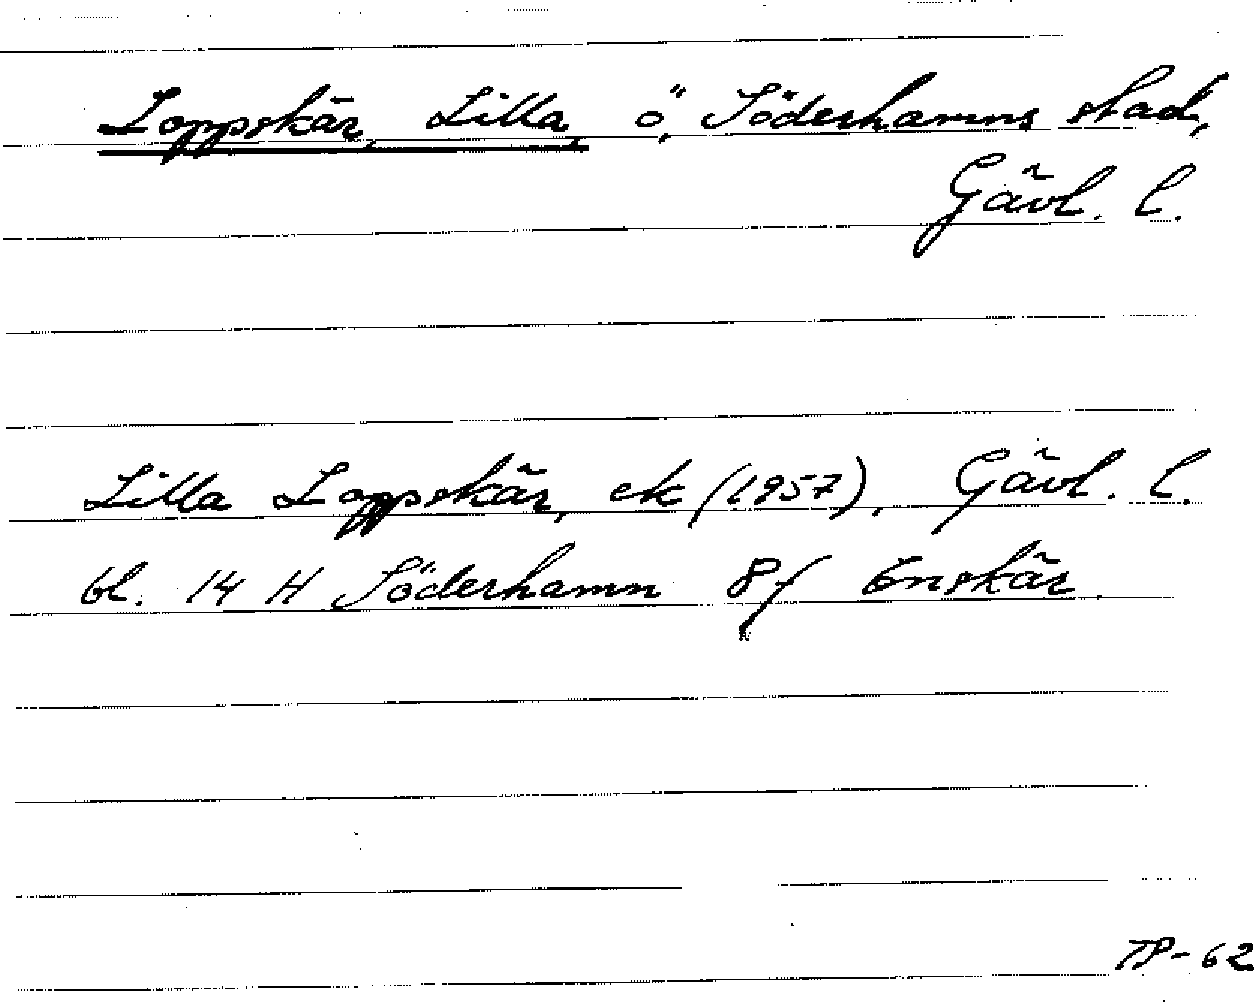 Loppskär, Lilla, ö, Söderhamns stad,
Gävl. l.
Lilla Loppskär, ek (1957), Gävl. l.
bl. 14 H Söderhamn 8f Enskär.
TP-62